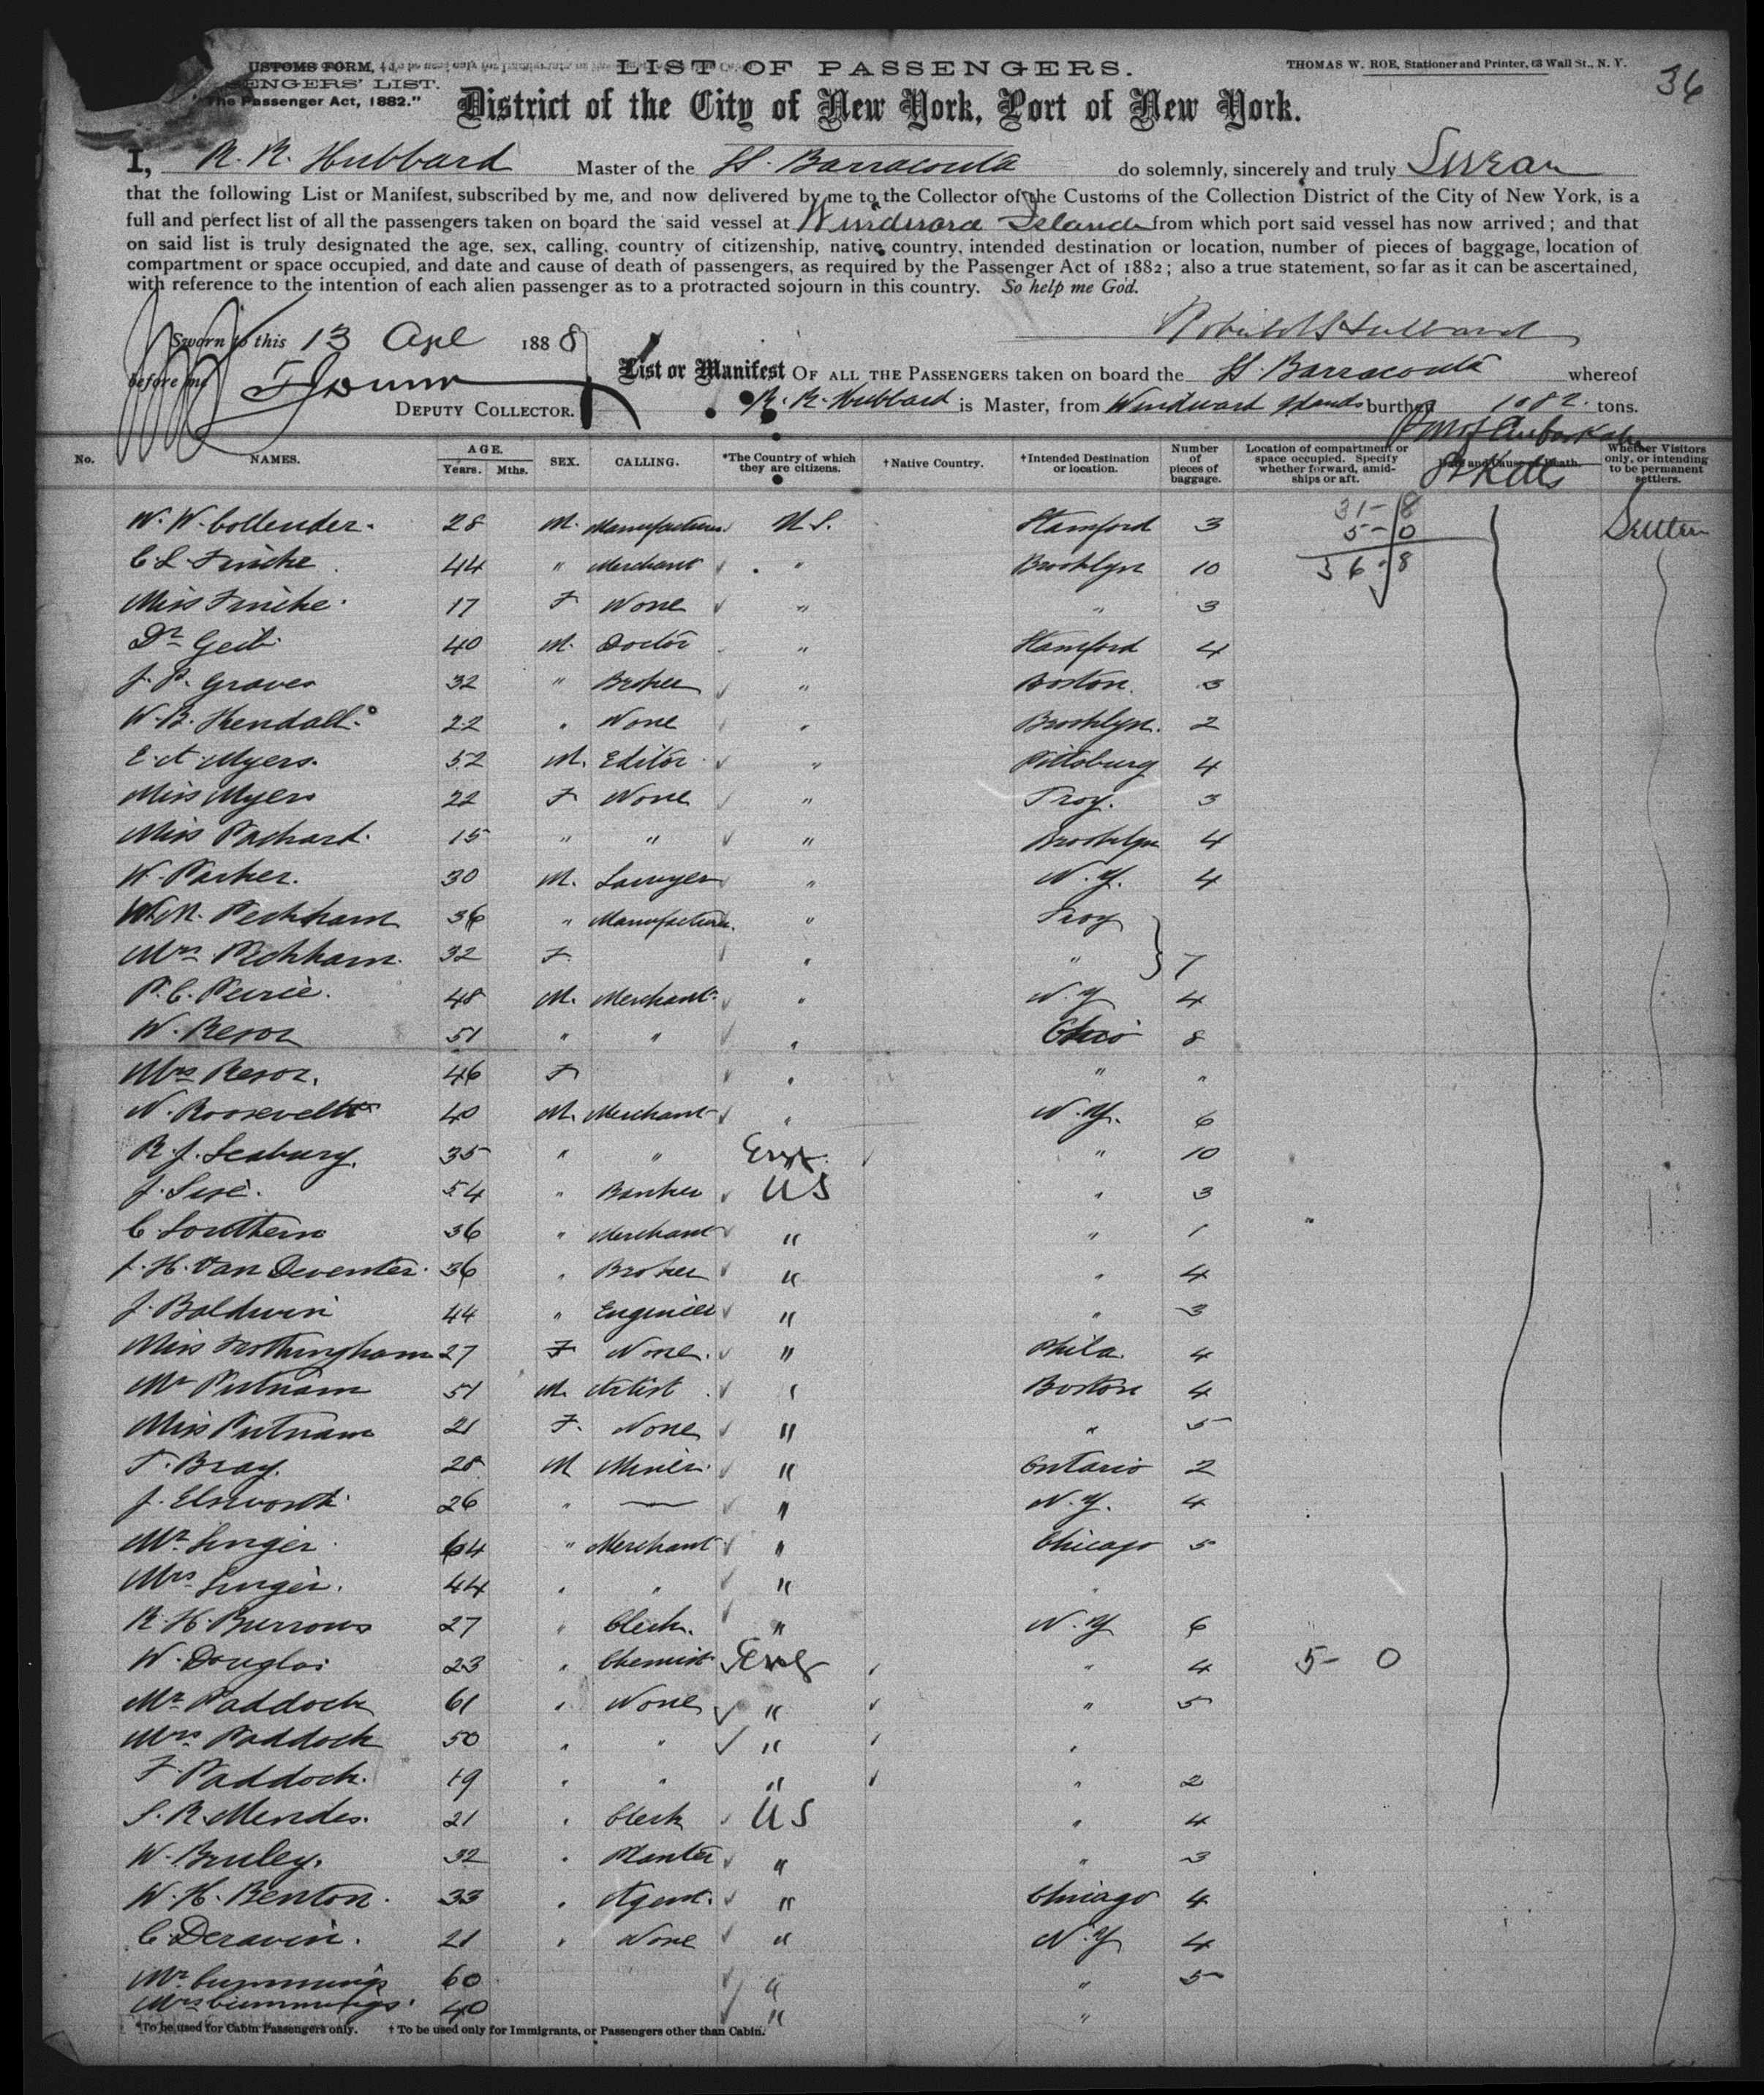 USTOMS FORM,
LIST OF PASSENGERS.
THOMAS W. ROE, Stationer and Printer, 63 Wall St., N. Y.
36
ENGERS' LIST.
"The Passenger Act, 1882."
District of the City of New York, Port of New York.
I, R. R. Hubbard Master of the SS. Barracouta do solemnly, sincerely and truly Swear
that the following List or Manifest, subscribed by me, and now delivered by me to the Collector of the Customs of the Collection District of the City of New York, is a
full and perfect list of all the passengers taken on board the said vessel at Windward Islands from which port said vessel has now arrived; and that
on said list is truly designated the age, sex, calling, country of citizenship, native country, intended destination or location, number of pieces of baggage, location of
compartment or space occupied, and date and cause of death of passengers, as required by the Passenger Act of 1882; also a true statement, so far as it can be ascertained,
with reference to the intention of each alien passenger as to a protracted sojourn in this country. So help me God.
Sworn to this 13 Apl 1888
before me
DEPUTY COLLECTOR.
List or Manifest OF ALL THE PASSENGERS taken on board the SS. Barracouta whereof
R. R. Hubbard is Master, from Windward Islands burthen 1082 tons.
No. NAMES. AGE. Years. Mths. SEX. CALLING. *The Country of which they are citizens. †Native Country. †Intended Destination or location. Number of pieces of baggage. Location of compartment or space occupied. Specify whether forward, amidships or aft. Date and Cause of Death. Whether Visitors only, or intending to be permanent settlers.
St Kitts
W. W. Collender. 28 M. Manufacturer U S. Stamford 3 31 - 8
5 - 0
C. L. Fincke 44 " Merchant " Brooklyn 10 36 - 8
Miss Fincke 17 F None " " 3
Dr Geib 40 M. Doctor " Stamford 4
J. P. Graves 32 " Broker " Boston. 3
W. B. Kendall. 22 " None " Brooklyn. 2
E. A. Myers. 52 M. Editor " Pittsburg 4
Miss Myers 22 F None " Troy. 3
Miss Packard. 15 " " " Brooklyn 4
W. Parker. 30 M. Lawyer " N. Y. 4
W. R. Peckham 36 " Manufacturer. " Troy
Mrs Peckham. 32 F. " " 7
P. C. Peirie. 48 M. Merchant " N. Y 4
W. Resor 51 " " " Ohio 8
Mrs Resor. 46 F " " "
N. Roosevelt 40 M. Merchant " N. Y. 6
R. J. Seabury. 35 " " Eng. " 10
J. Sise. 54 " Banker U S " 3
C. Southern 36 " Merchant " " 1
J. H. Van Deventer. 36 " Broker " " 4
J. Baldwin 44 " Engineer " " 3
Miss Frothingham 27 F None. " Phila 4
Mr Putnam 51 M. Artist " Boston 4
Miss Putnam 21 F. None " " 5
T. Bray. 28 M Miner. " Ontario 2
J. Elsworth 26 " — " N. Y. 4
Mr Singer 64 " Merchant " Chicago 5
Mrs Singer. 44 " " " "
R. H. Burrows 27 " Clerk. " N. Y 6
W. Douglas 23 " Chemist Eng " 4 5 - 0
Mr Paddock 61 " None " " 5
Mrs Paddock 50 " " " "
F. Paddock. 19 " " " " 2
S. R. Mendes. 21 " Clerk U S " 4
W. Bruley. 32 " Planter " " 3
W. H. Benton. 33 " Agent. " Chicago 4
C. Deravin. 21 " None " N. Y 4
Mr Cummings 60 " " 5
Mrs Cummings. 40 " "
*To be used for Cabin Passengers only. †To be used only for Immigrants, or Passengers other than Cabin.